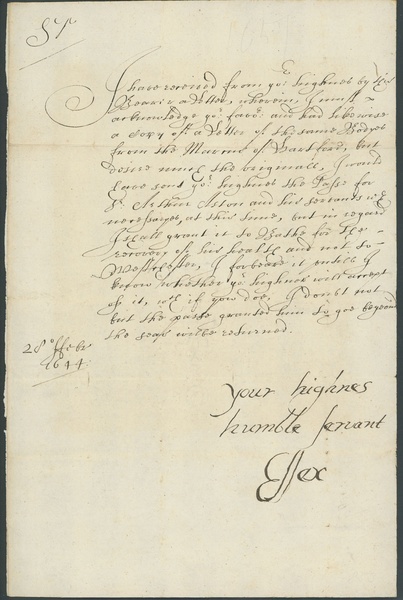 Sr
I have receued from yor highnes by this
Bearer a Letter, wherein I must
acknowledge yor favor: and had likewise
a Copy of a Letter of the same
from the of Hartford, but
desire much the originall, I would
have sent yor highnes the Passe for
Sr Arthur Aston and his servants &
necessaryes, at this time, but in regard
I shall grant it to Bathe for the
recovery of his health and not to
Westchester, I forbeare it untill I
know whether yor highnes will accept
of it, wch if you doe, I doubt not
but the passe granted him to goe beyond
the seas wilbe returned.
28° ffebr
1644:
your highnes
humble servant
Essex